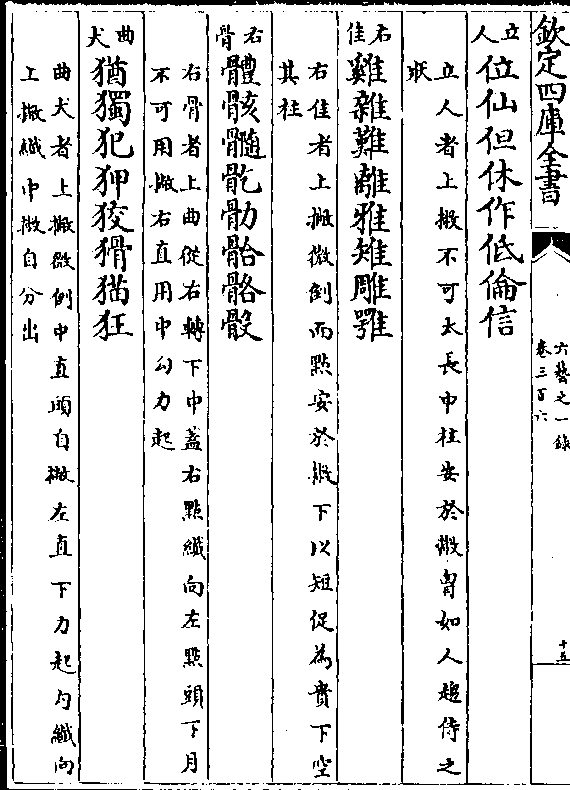 欽定四庫全書
六藝之一錄
卷三百六
十五
立人
位仙但休作低倫信
立人者上撇不可太長中柱安於撇胷如人趨侍之
狀
右隹
雞雜難離雅雉雕鄂
右隹者上撇微倒而點安於撇下以短促為貴下空
其柱
右骨
體骸髓骫骪骷骼骰
右骨者上曲從右轉下中蓋右點纖向左點頭下月
不可用撇右直用中勾力起
曲犬
猶獨犯狎狡猾猶狂
曲犬者上撇微倒中直頭自撇左直下力起勾纖向
上撇纖中撇自分出